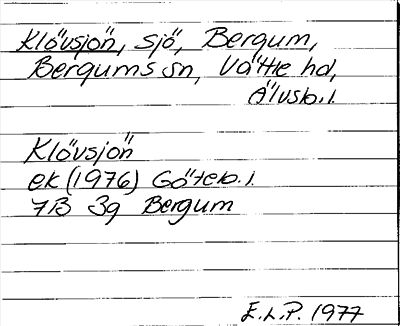 Klövsjön, sjö, Bergum,
Bergums sn, Vättle hd,
Älvsb.l.
Klövsjön
ek (1976) Göteb.l.
7B 3g Bergum
E.L.P. 1977